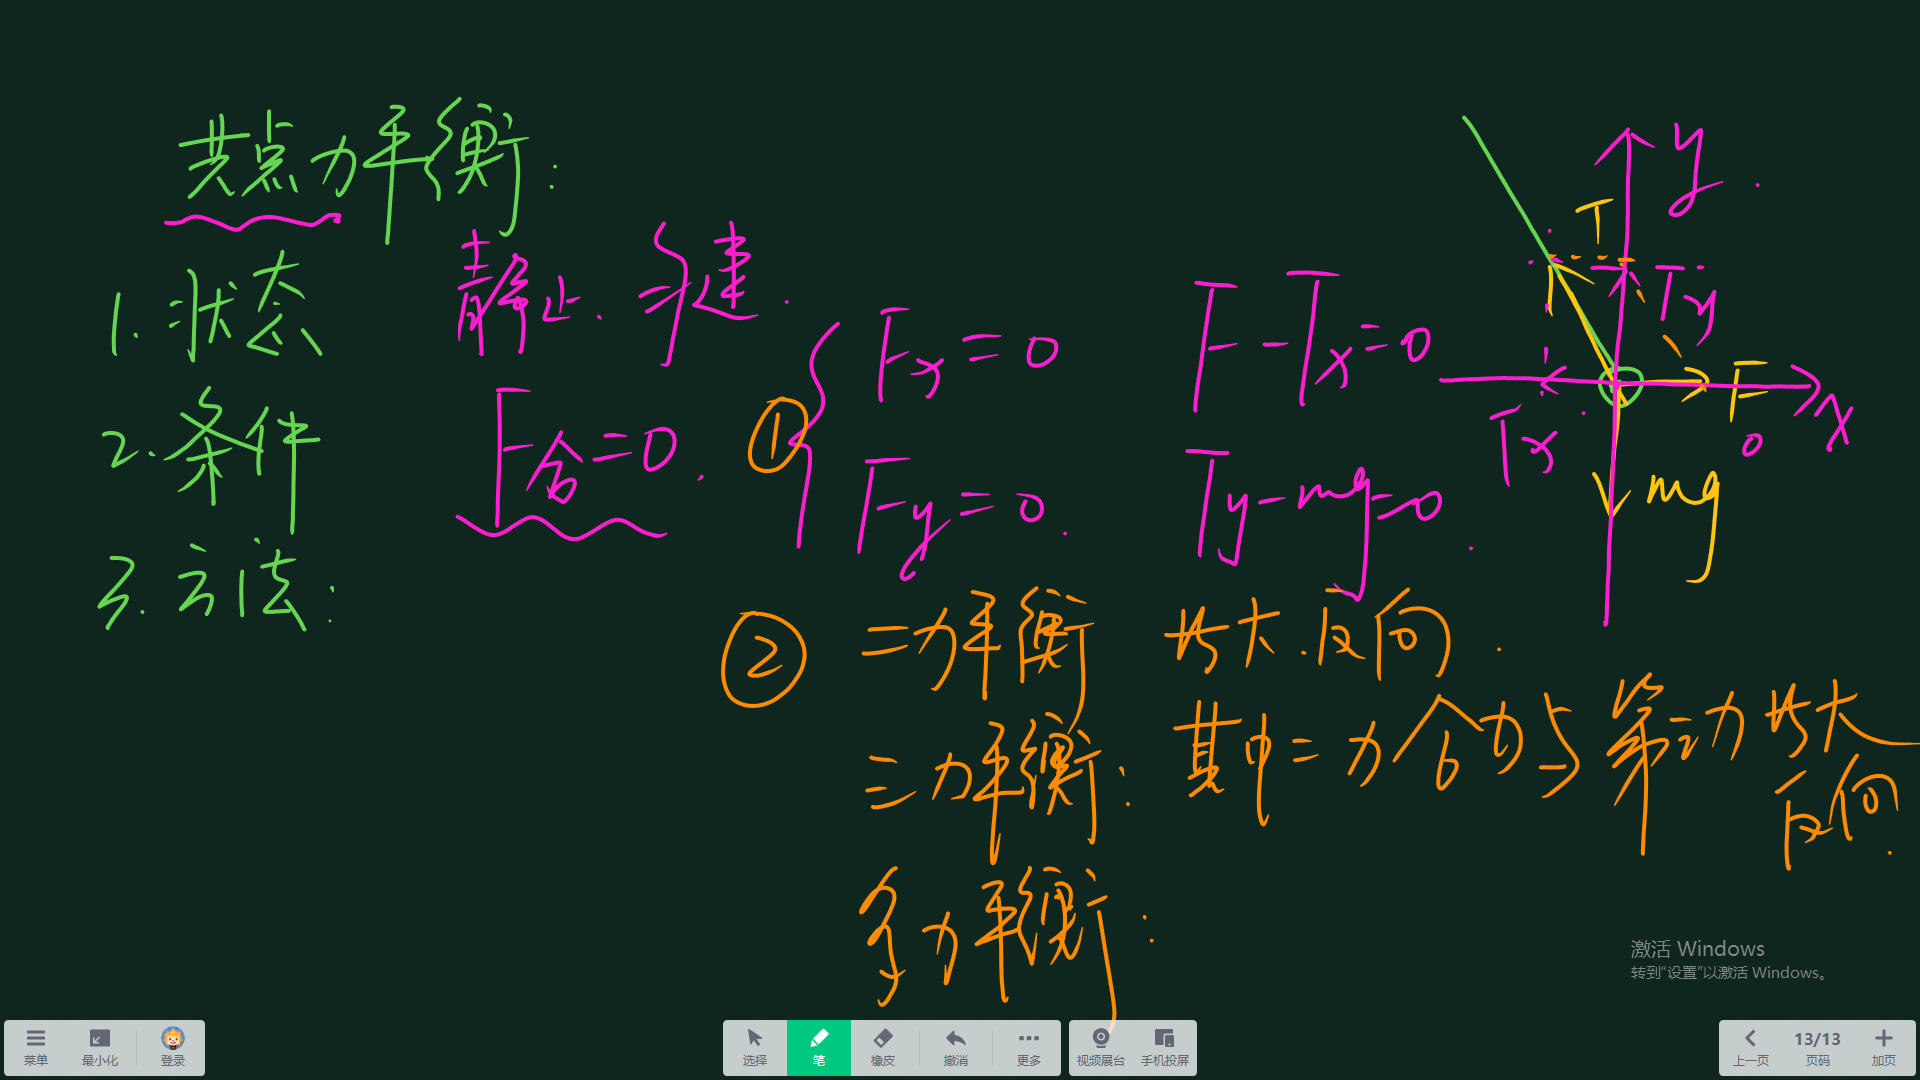 共点力平衡：
1. 状态 静止. 匀速.
2. 条件 F合=0.
① Fx=0 F-Tx=0
Fy=0. Ty-mg=0.
3. 方法：
② 二力平衡 共大.反向.
三力平衡：其中二力合力与第三力共大
反向.
多力平衡：
y
T
Ty
F
x
Tx
0
mg
激活 Windows
转到“设置”以激活 Windows。
菜单 最小化 登录 选择 笔 橡皮 撤消 更多 视频展台 手机投屏 上一页 13/13 页码 加页